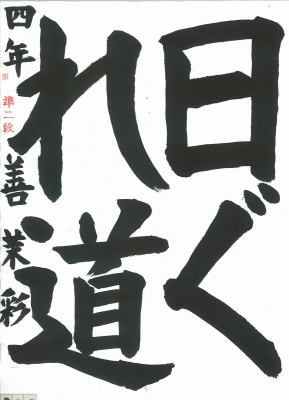 日ぐ
れ道
四年 準二段 善茉彩